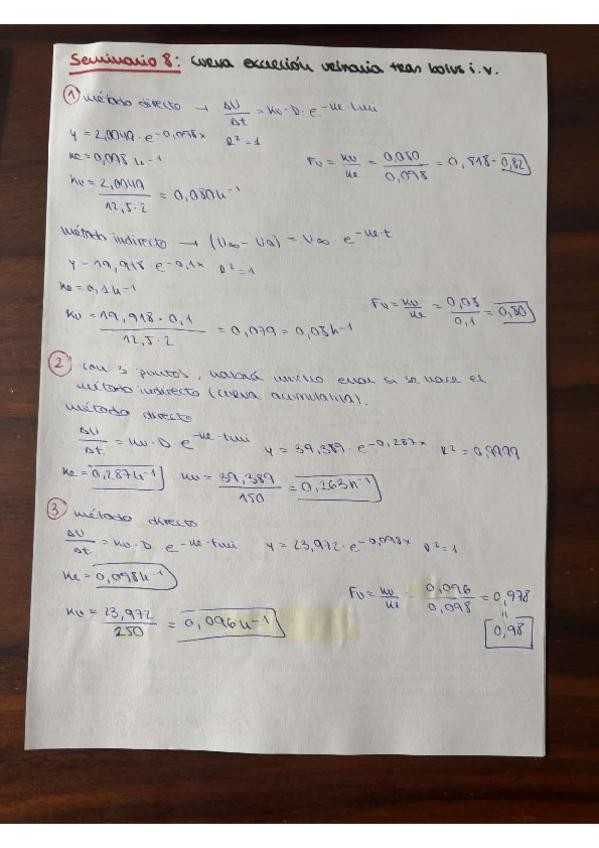 Seminario 8: curva excreción urinaria tras bolus i.v.
① método directo → ΔU/Δt = Ku · D · e^-Ke·tmi
y = 2,0049 · e^-0,098x R² = 1
Ke = 0,098 h^-1
Fu = Ku/Ke = 0,080/0,098 = 0,818 - 0,82
Ku = 2,0049/12,5·2 = 0,080 h^-1
método indirecto → (U∞ - Ua) = U∞ · e^-Ke·t
y = 19,918 · e^-0,1x R² = 1
Ke = 0,1 h^-1
Fu = Ku/Ke = 0,08/0,1 = 0,80
Ku = 19,918 · 0,1/12,5·2 = 0,079 = 0,08 h^-1
② con 3 puntos, habrá mucho error si se hace el
método indirecto (curva acumulativa).
método directo
ΔU/Δt = Ku · D e^-Ke·tmi y = 39,389 · e^-0,287x R² = 0,9999
Ke = 0,287 h^-1 Ku = 39,389/150 = 0,263 h^-1
③ método directo
ΔU/Δt = Ku · D e^-Ke·tmi y = 23,972 · e^-0,098x R² = 1
Ke = 0,098 h^-1
Fu = Ku/Ke = 0,096/0,098 = 0,978
Ku = 23,972/250 = 0,096 h^-1
= 0,98